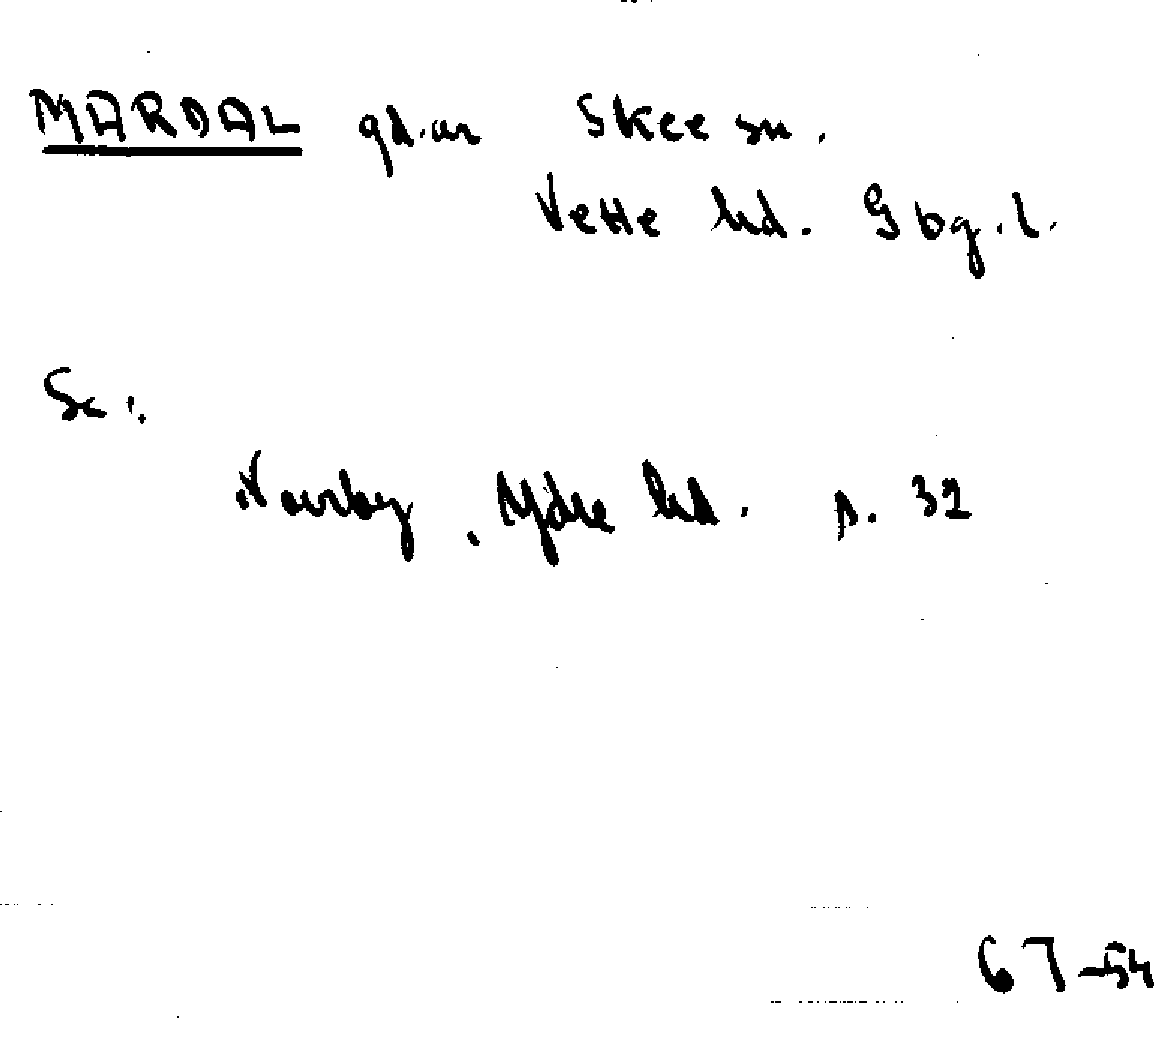 MARDAL gd.ar Skee sn.
Vette hd. Gbg.l.
Se:
Norrby, Ydre hd. s. 32
67-54